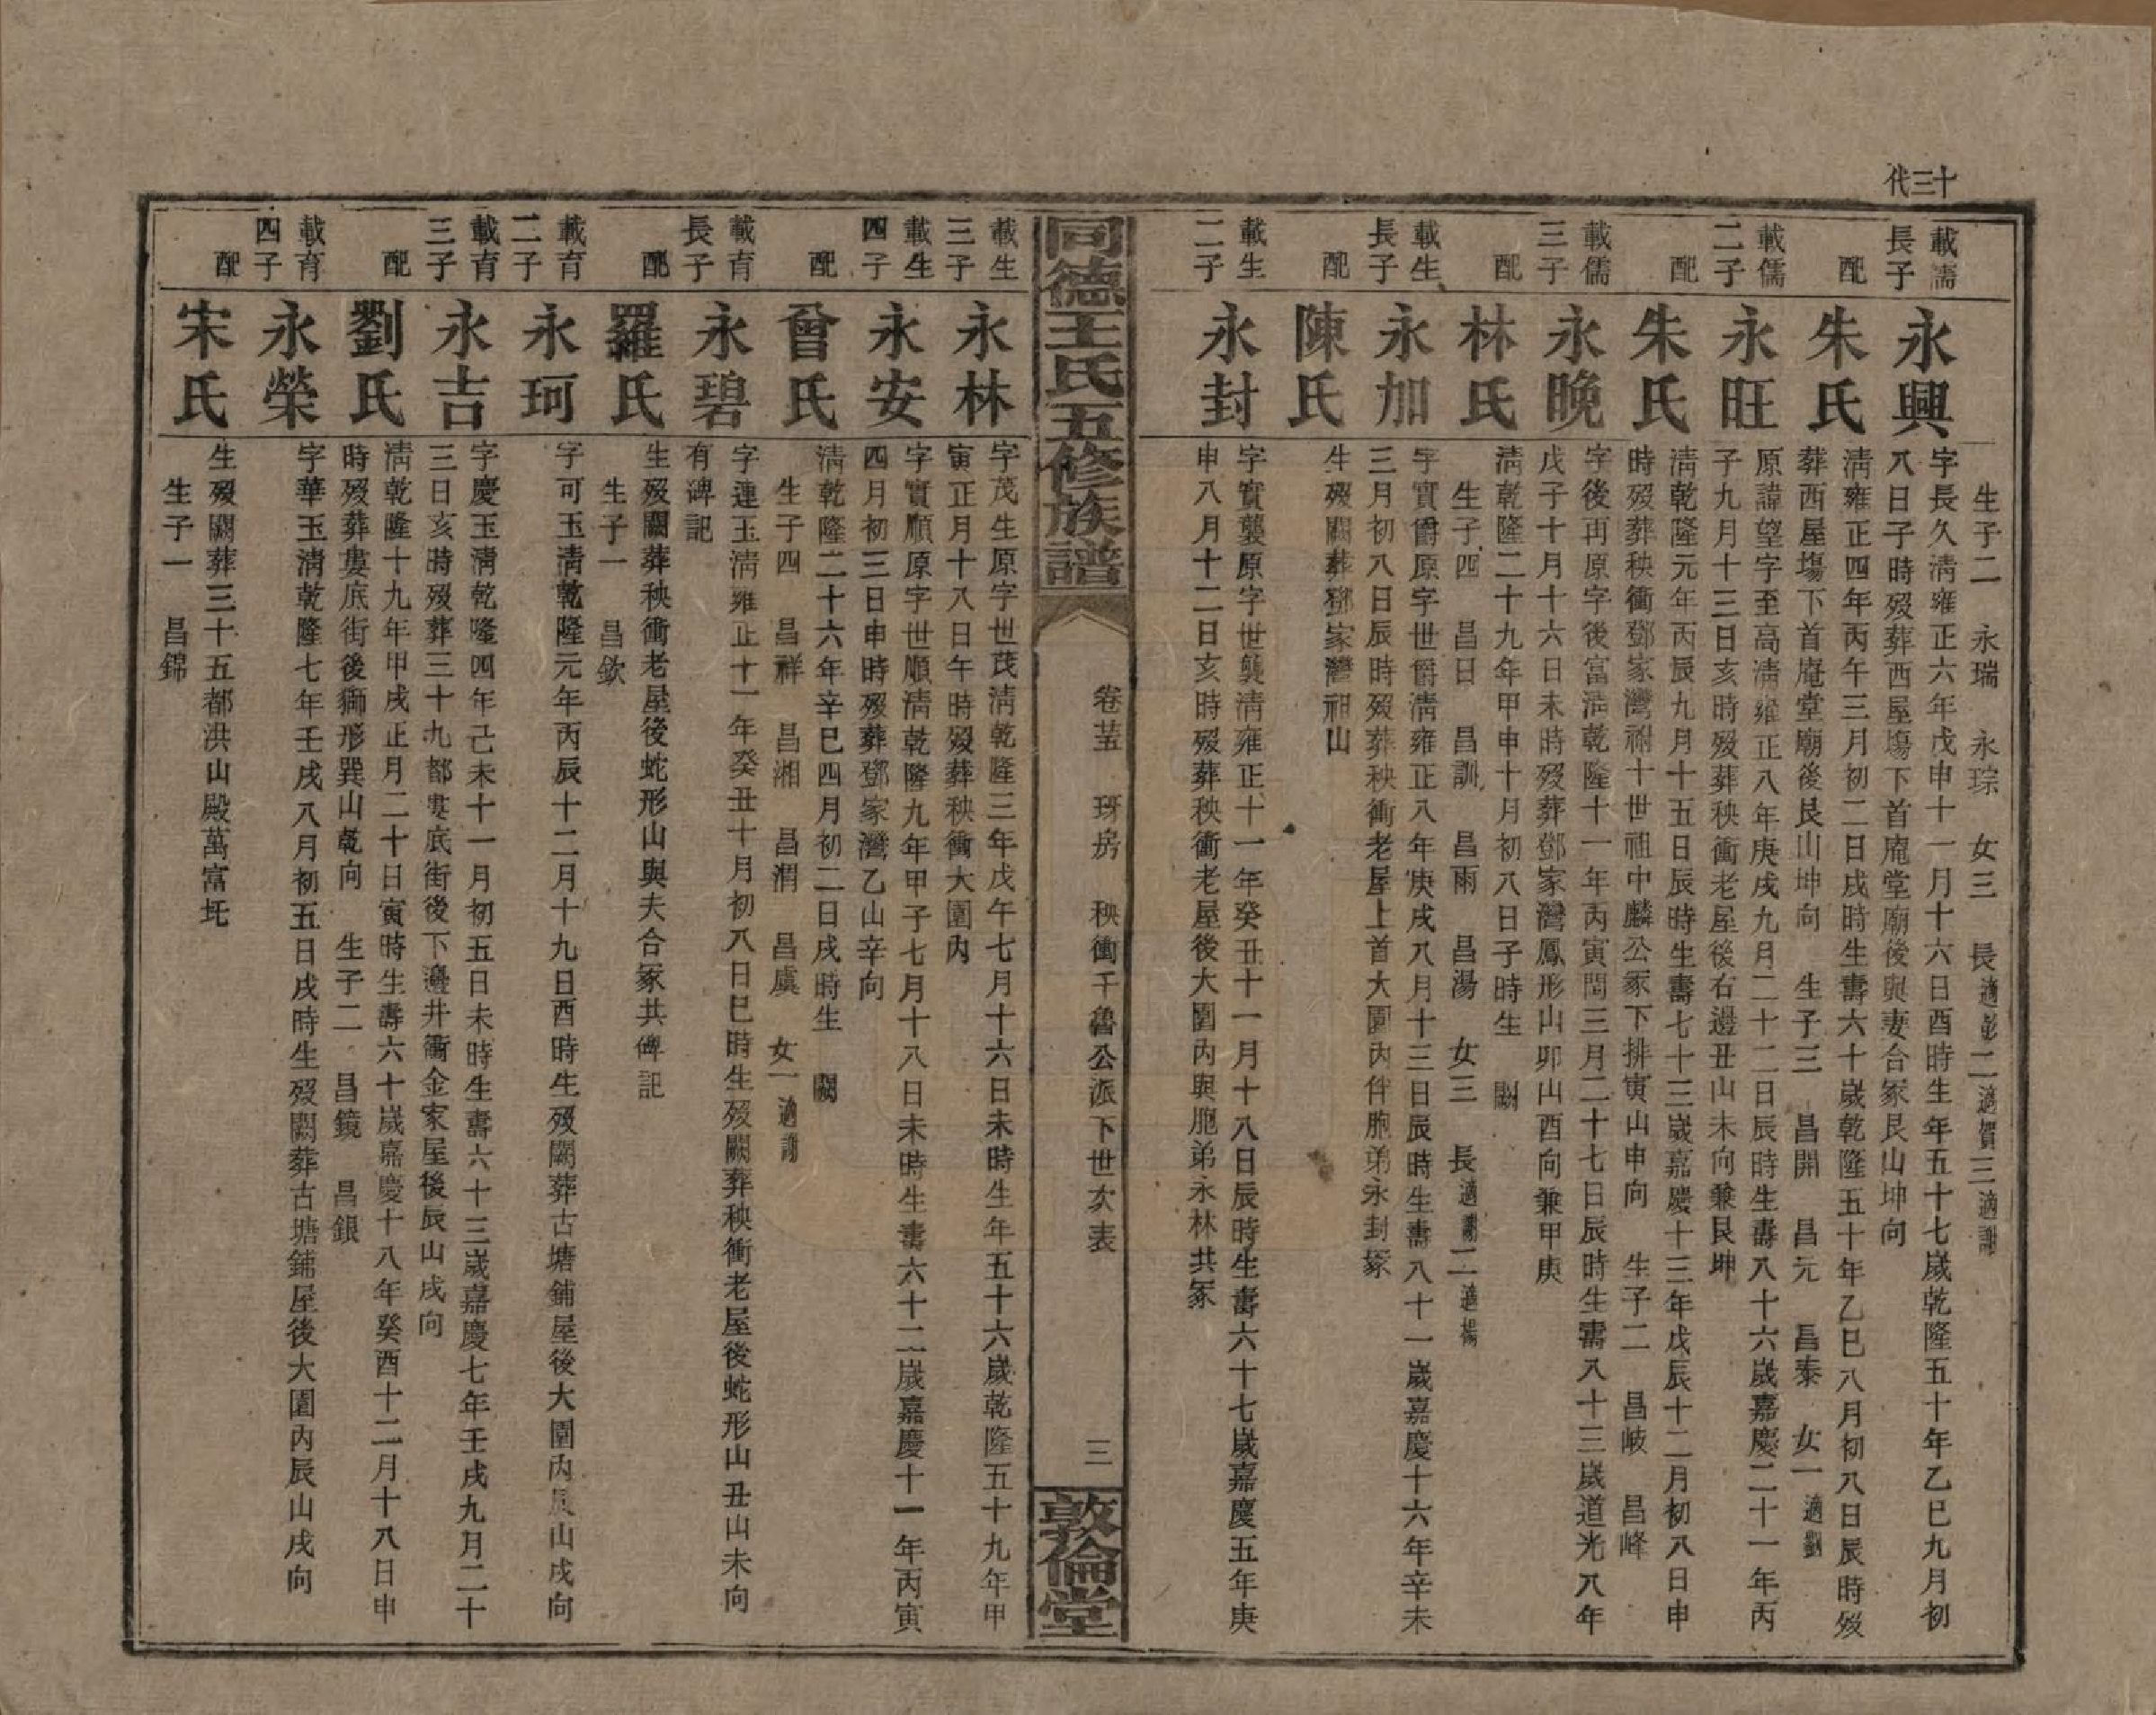 十三代
生子二　永瑞　永琮　女三　長適彭二適賀三適謝
載濡長子　永興　字長久淸雍正六年戊申十一月十六日酉時生年五十七歲乾隆五十年乙巳九月初
八日子時歿葬西屋塲下首庵堂廟後與妻合冢艮山坤向
配　朱氏　淸雍正四年丙午三月初二日戌時生壽六十歲乾隆五十年乙巳八月初八日辰時歿
葬西屋塲下首庵堂廟後艮山坤向　生子三　昌開　昌元　昌泰　女一適劉
載儒二子　永旺　原諱望字至高淸雍正八年庚戌九月二十二日辰時生壽八十六歲嘉慶二十一年丙
子九月十三日亥時歿葬秧衝老屋後右邊丑山未向兼艮坤
配　朱氏　淸乾隆元年丙辰九月十五日辰時生壽七十三歲嘉慶十三年戊辰十二月初八日申
時歿葬秧衝鄧家灣祔十世祖中麟公冢下排寅山申向　生子二　昌岐　昌峰
載儒三子　永晚　字後再原字後富淸乾隆十一年丙寅閏三月二十七日辰時生壽八十三歲道光八年
戊子十月十六日未時歿葬鄧家灣鳳形山卯山酉向兼甲庚
配　林氏　淸乾隆二十九年甲申十月初八日子時生　闕
生子四　昌日　昌訓　昌雨　昌湯　女三　長適謝二適楊
載生長子　永加　字實爵原字世爵淸雍正八年庚戌八月十三日辰時生壽八十一歲嘉慶十六年辛未
三月初八日辰時歿葬秧衝老屋上首大園內伴胞弟永封冢
配　陳氏　生歿闕葬鄧家灣祖山
載生二子　永封　字實襲原字世襲淸雍正十一年癸丑十一月十八日辰時生壽六十七歲嘉慶五年庚
申八月十二日亥時歿葬秧衝老屋後大園內與胞弟永林共冢
同德王氏五修族譜　卷　玡房　秧衝千魯公派下世次表　三　敦倫堂
載生三子　永林　字茂生原字世茂淸乾隆三年戊午七月十六日未時生年五十六歲乾隆五十九年甲
寅正月十八日午時歿葬秧衝大園內
載生四子　永安　字實順原字世順淸乾隆九年甲子七月十八日未時生壽六十二歲嘉慶十一年丙寅
四月初三日申時歿葬鄧家灣乙山辛向
配　曾氏　淸乾隆二十六年辛巳四月初二日戌時生　闕
生子四　昌祥　昌湘　昌渭　昌虞　女一適謝
載育長子　永碧　字連玉淸雍正十一年癸丑十月初八日巳時生歿闕葬秧衝老屋後蛇形山丑山未向
有碑記
配　羅氏　生歿闕葬秧衝老屋後蛇形山與夫合冢共碑記
生子一　昌欽
載育二子　永珂　字可玉淸乾隆元年丙辰十二月十九日酉時生歿闕葬古塘鋪屋後大園內辰山戌向
載育三子　永吉　字慶玉淸乾隆四年己未十一月初五日未時生壽六十三歲嘉慶七年壬戌九月二十
三日亥時歿葬三十九都婁底街後下邊井衝金家屋後辰山戌向
配　劉氏　淸乾隆十九年甲戌正月二十日寅時生壽六十歲嘉慶十八年癸酉十二月十八日申
時歿葬婁底街後獅形巽山乾向　生子二　昌鏡　昌銀
載育四子　永榮　字華玉淸乾隆七年壬戌八月初五日戌時生歿闕葬古塘鋪屋後大園內辰山戌向
配　宋氏　生歿闕葬三十五都洪山殿萬富圫
生子一　昌錦